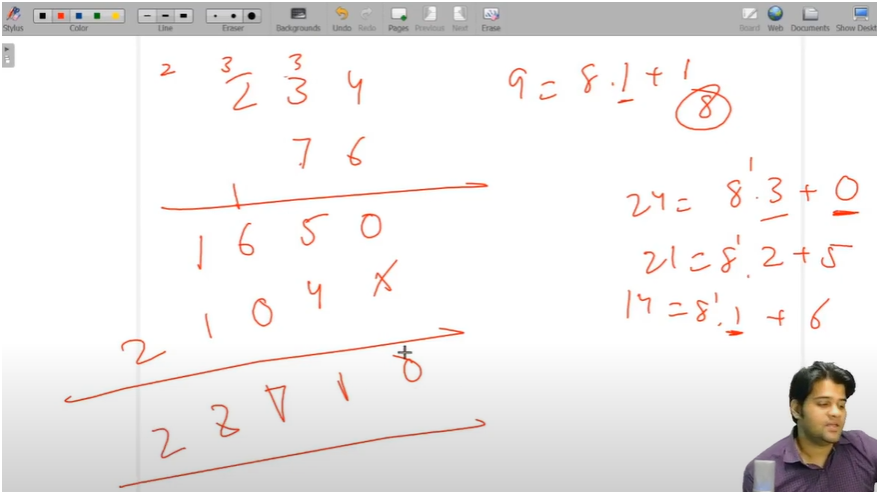 Stylus Color Line Eraser Backgrounds Undo Redo Pages Previous Next Erase Board Web Documents Show Deskt
2 3 3
2 3 4
7 6
1
1 6 5 0
2 1 0 4 x
2 2 7 1 0
9 = 8.1 + 1
8
24 = 8¹.3 + 0
21 = 8¹.2 + 5
14 = 8¹.1 + 6